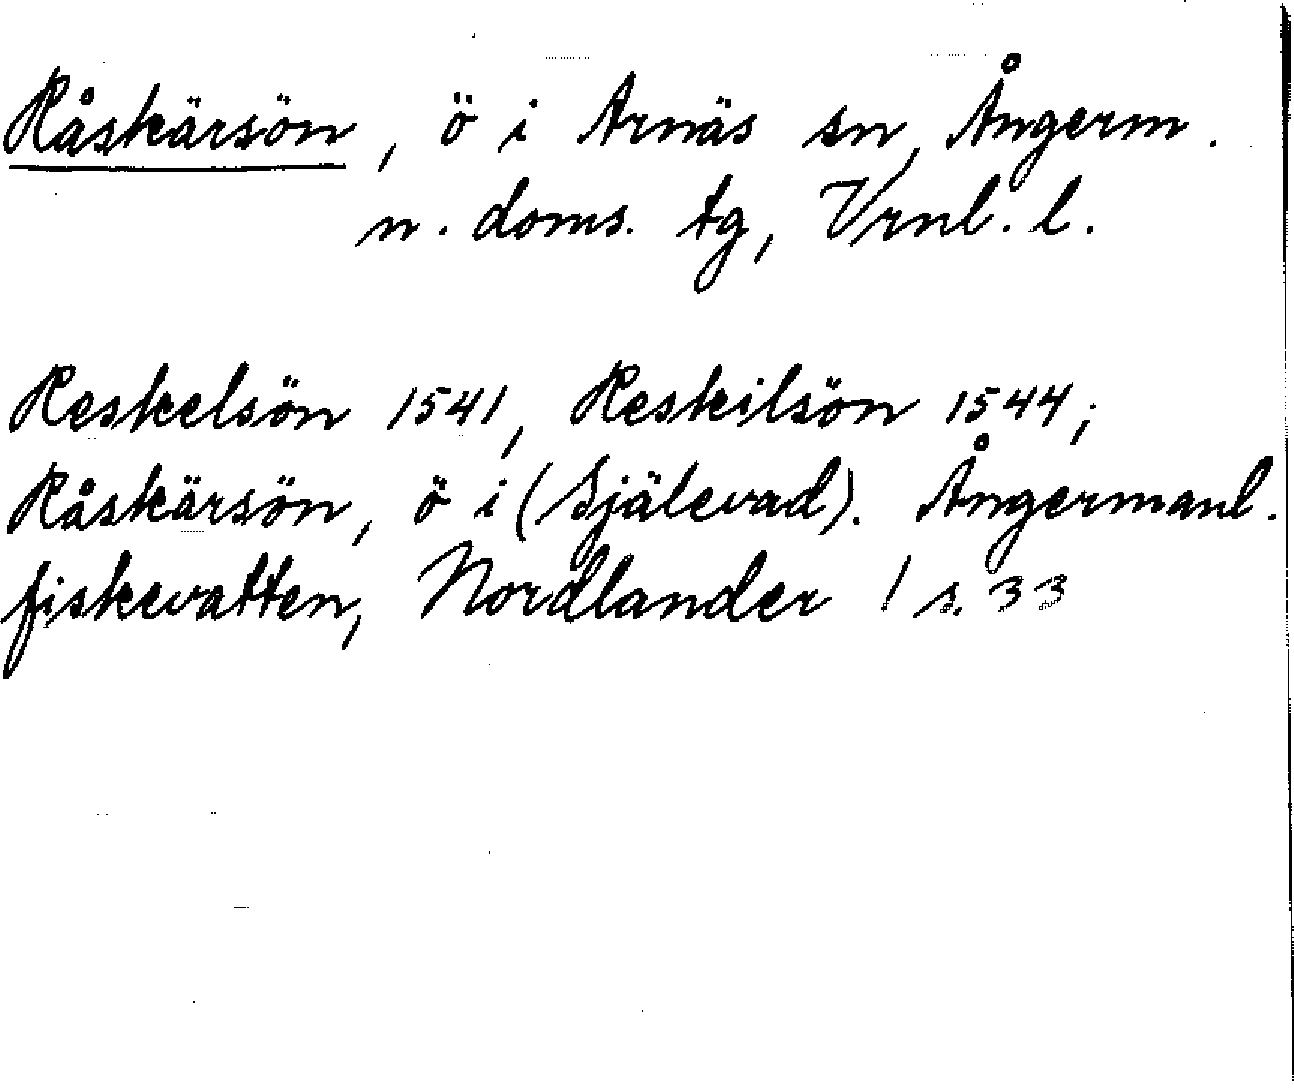 Råskärsön, ö i Arnäs sn, Ångerm.
n. doms. tg, Vrnl. l.
Reskelsön 1541, Reskilsön 1544;
Råskärsön, ö i (Själevad). Ångermanl.
fiskevatten, Nordlander 1 s. 33